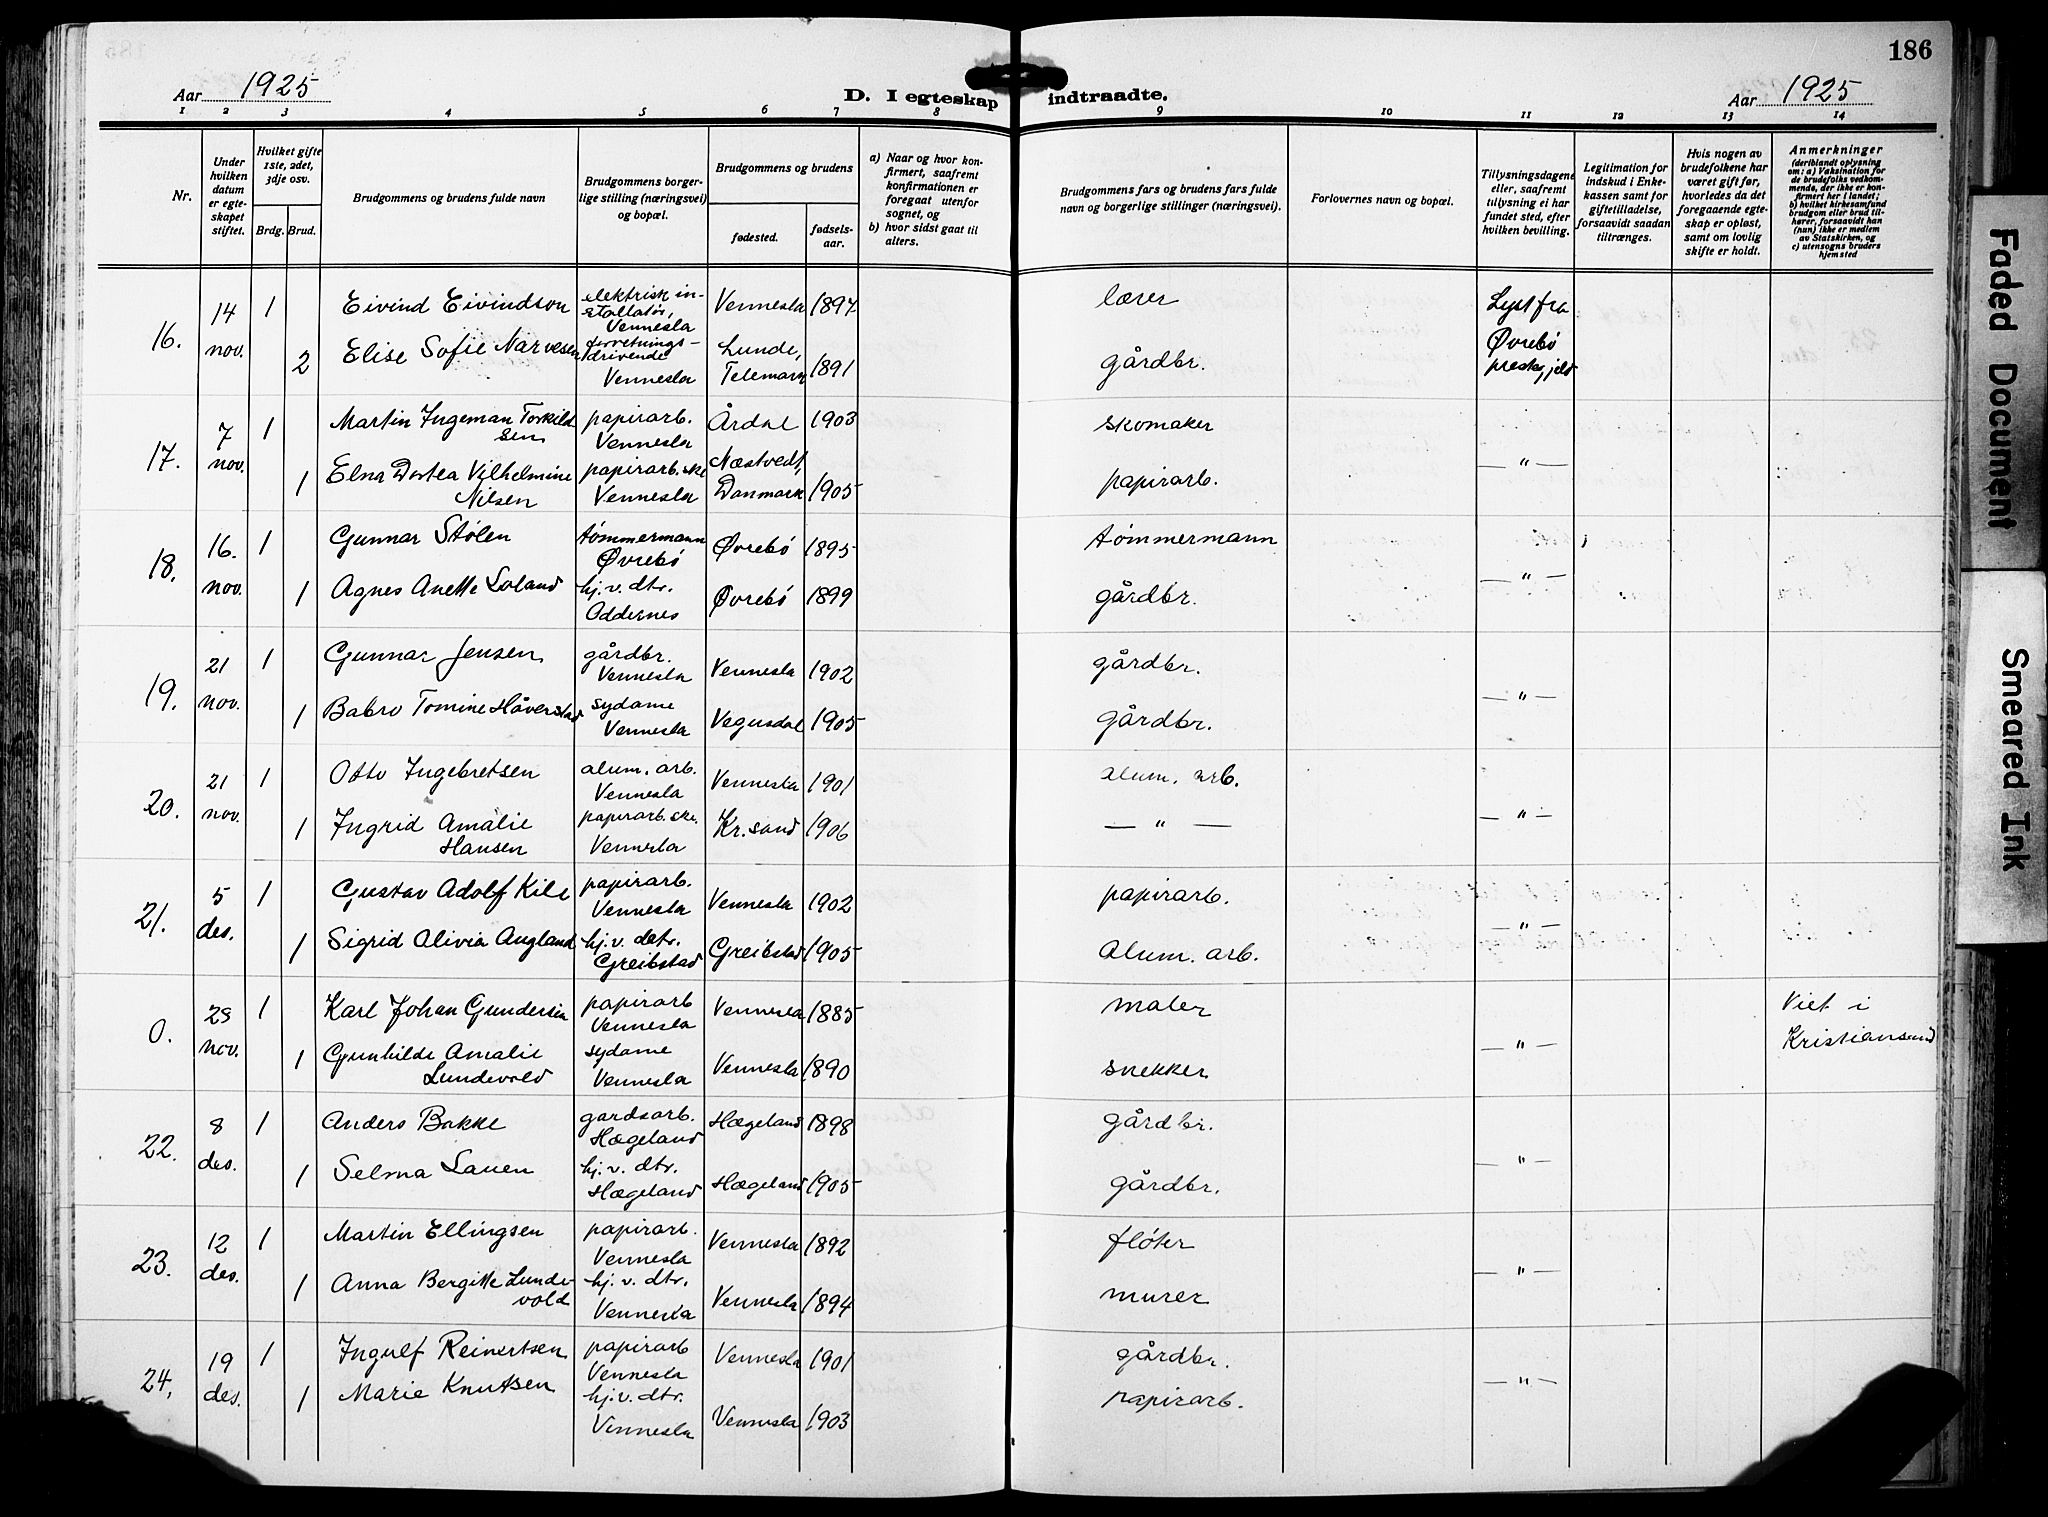 186
Aar 1925
D. I egteskap indtraadte.
Aar 1925
1 2 3 4 5 6 7 8 9 10 11 12 13 14
Nr.
Under hvilken datum er egteskapet stiftet.
Hvilket gifte 1ste, 2det, 3dje osv.
Brdg. Brud.
Brudgommens og brudens fulde navn
Brudgommens borgerlige stilling (næringsvei) og bopæl.
Brudgommens og brudens
fødested.
fødselsaar.
a) Naar og hvor konfirmert, saafremt konfirmationen er foregaat utenfor sognet, og
b) hvor sidst gaat til alters.
Brudgommens fars og brudens fars fulde navn og borgerlige stillinger (næringsvei).
Forlovernes navn og bopæl.
Tillysningsdagene eller, saafremt tillysning ei har fundet sted, efter hvilken bevilling.
Legitimation for indskud i Enkekassen samt for giftetilladelse, forsaavidt saadan tiltrænges.
Hvis nogen av brudefolkene har været gift før, hvorledes da det foregaaende egteskap er opløst, samt om lovlig skifte er holdt.
Anmerkninger (deriblandt oplysning om: a) Vaksination for de brudefolks vedkommende, der ikke er konfirmert her i landet; b) hvilket kirkesamfund brudgom eller brud tilhører, forsaavidt han (hun) ikke er medlem av Statskirken, og c) utensogns bruders hjemsted
16. 14 nov. 1 Eivind Eivindson elektrisk installatør, Vennesla Vennesla 1897 lærer Lyst fra Øvrebø prestegjeld
2 Elise Sofie Narvesen forretningsdrivende Vennesla Lunde, Telemark 1891 gårdbr.
17. 7 nov. 1 Martin Ingeman Torkildsen papirarb. Vennesla Årdal 1903 skomaker — " —
1 Elna Dortea Vilhelmine Nilsen papirarb.ske Vennesla Næstvedt, Danmark 1905 papirarb.
18. 16. nov. 1 Gunnar Stølen tømmermann Øvrebø Øvrebø 1895 tømmermann — " —
1 Agnes Anette Loland hj. v. dtr. Oddernes Øvrebø 1899 gårdbr.
19. 21 nov. 1 Gunnar Jensen gårdbr. Vennesla Vennesla 1902 gårdbr. — " —
1 Babro Tomine Håverstad sydame Vennesla Vegusdal 1905 gårdbr.
20. 21 nov. 1 Otto Ingebretsen alum. arb. Vennesla Vennesla 1901 alum. arb. — " —
1 Ingrid Amalie Hansen papirarb.ske. Vennesla Kr.sand 1906 — " —
21. 5 des. 1 Gustav Adolf Kile papirarb. Vennesla Vennesla 1902 papirarb. — " —
1 Sigrid Alivia Augland hj. v. datr. Greibstad Greibstad 1905 alum. arb.
0. 29 nov. 1 Karl Johan Gundersen papirarb Vennesla Vennesla 1885 maler — " — Viet i Kristiansand
1 Gunhilde Amalie Lundevold sydame Vennesla Vennesla 1890 snekker
22. 8 des. 1 Anders Bakke gardsarb. Hægeland Hægeland 1898 gårdbr. — " —
1 Selma Lauen hj. v. dtr. Hægeland Hægeland 1905 gårdbr.
23. 12 des. 1 Martin Ellingsen papirarb. Vennesla Vennesla 1892 fløter — " —
1 Anna Bergitte Lundevold hj. v. dtr. Vennesla Vennesla 1894 murer
24. 19 des. 1 Ingulf Reinertsen papirarb Vennesla Vennesla 1901 gårdbr. — " —
1 Marie Knutsen hj. v. dtr. Vennesla Vennesla 1903 papirarb.
Faded Document
Smeared Ink